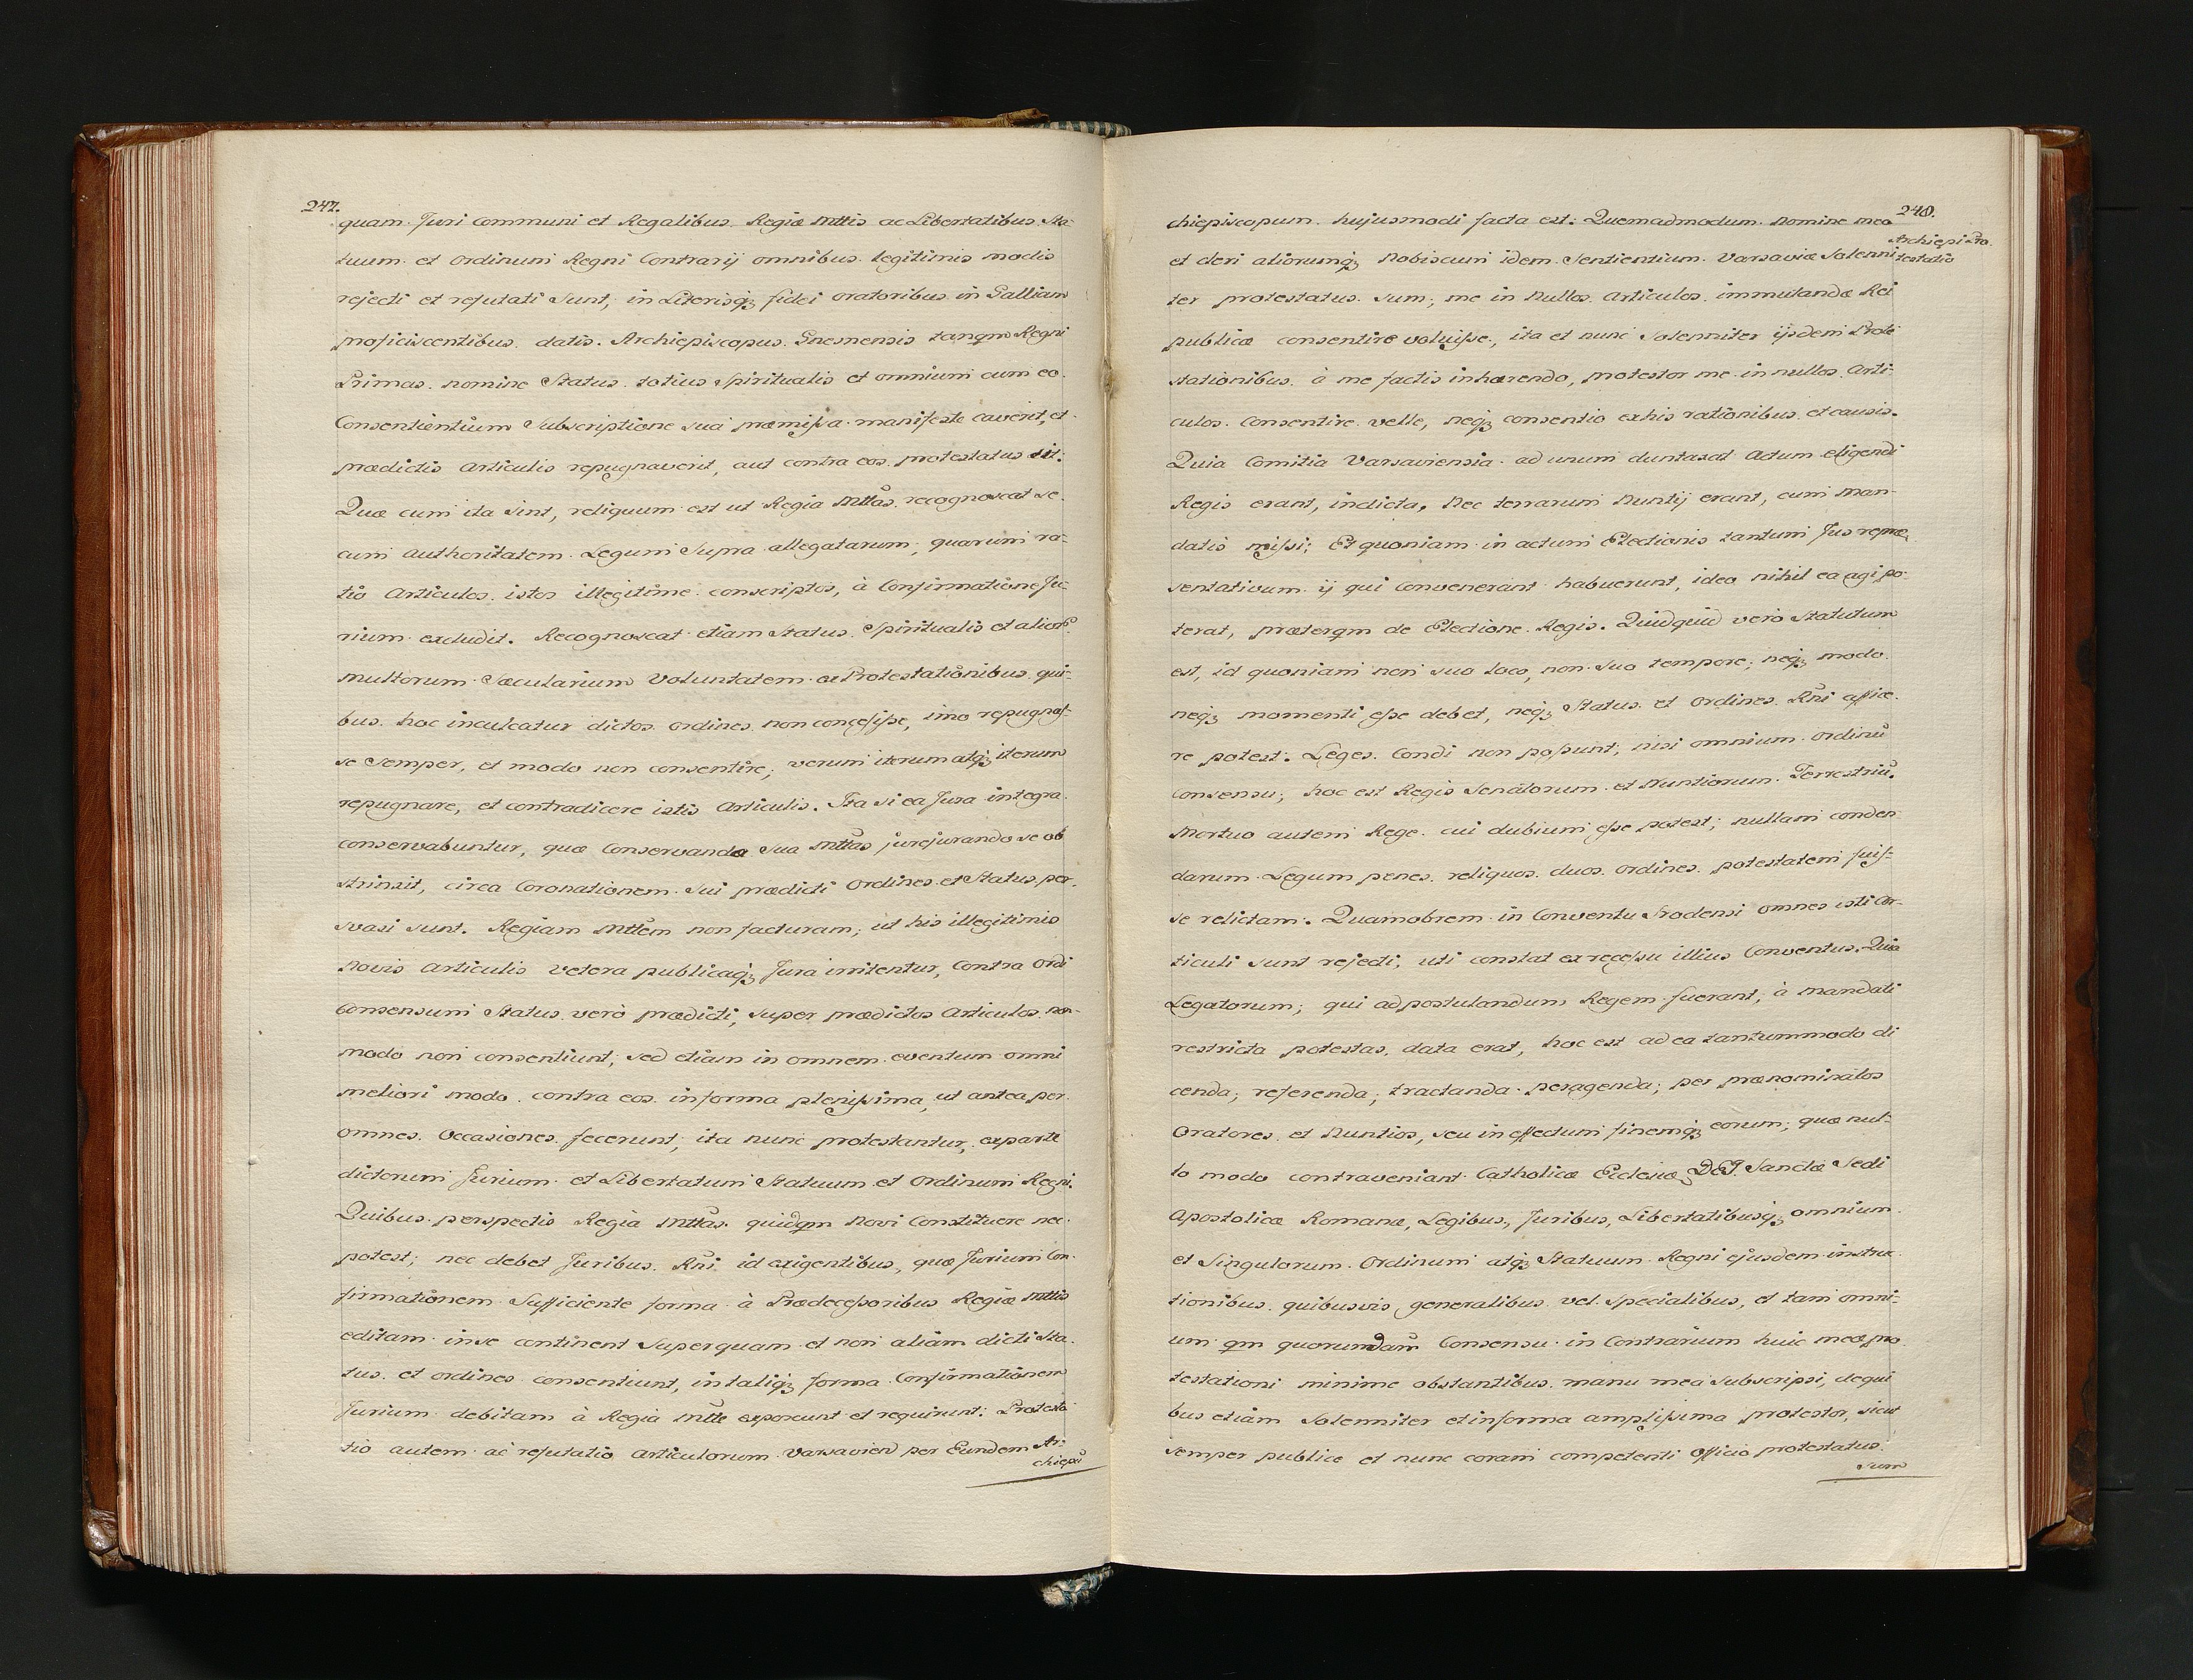 247.
quam Juri Communi et Regalibus Regiæ Mttis ac Libertatibus Sta-
tuum et Ordinum Regni Contrarij omnibus legitimis modis
rejecti et refutati Sunt, in Literisq; fidei oratoribus in Galliam
proficiscentibus datis. Archiepiscopus Gnesnensis tanqm Regni
Primas nomine Status totius Spiritualis et omnium cum eo
Consentientium Subscriptione sua præmissa manifeste caverit, et
prædictis Articulis repugnaverit, aut contra eos protestatus sit:
Quæ cum ita sint, reliquum est ut Regia Mttas recognoscat se-
cum Authoritatem Legum Supra allegatarum, quarum ra-
tio Articulos istos illegitime conscriptos, à Confirmatione Ju-
rium excludit. Recognoscat etiam Status Spiritualis et alior̃
multorum Sæcularium Voluntatem ac Protestationibus qui-
bus hoc inculcatur dictos ordines non concessisse, imo repugnas-
se Semper, et modo non consentire; verum iterum atq; iterum
repugnare, et contradicere istis Articulis. Ita si ea Jura integra
conservabuntur, quæ Conservanda Sua Mttas jurejurando se ob
strinxit, circa Coronationem Sui prædicti Ordines et Status per-
svasi sunt. Regiam Mttem non facturam, ut his illegitimis
novis Articulis vetera publicaq; Jura irritentur, Contra Ordi
Consensum Status verò prædicti, super prædictos Articulos non-
modo non consentiunt; sed etiam in omnem eventum omni
meliori modo contra eos in forma plenissima, ut antea per
omnes Occasiones fecerunt, ita nunc protestantur, ex parte
dictorum Jurium et Libertatum Statuum et Ordinum Regni.
Quibus perspectis Regia Mttas quidqm Novi Constituere nec
potest; nec debet Juribus Rñi id exigentibus, quæ Jurium Con-
firmationem Sufficiente forma à Prædecessoribus Regiæ Mttis
editam in se continent Superquam et non aliam dicti Sta-
tus et ordines consentiunt, in taliq; forma Confirmationem
Jurium debitam à Regia Mtte exposcunt et requirunt: Protesta
tio autem ac refutatio Articulorum Varsavien per Eundem Ar-
chiepũ
248.
chiepiscopum hujusmodi facta est: Quemadmodum Nomine meo
Archiepi Pro-
testatio
et cleri aliorumq; Nobiscum idem Sentientium Varsaviæ Solenni
ter protestatus sum, me in Nullos Articulos immutandæ Rei
publicæ consentire voluisse, ita et nunc Solenniter ijsdem Prote
stationibus à me factis inhærendo, protestor me in nullos Arti-
culos Consentire velle, neq; consentio ex his rationibus et causis.
Quia Comitia Varsaviensia ad unum duntaxat Actum eligendi
Regis erant, indicta, Nec terrarum Nuntij erant, cum man-
datis missi; Et quoniam in actum Electionis tantum Jus repræ-
sentativum ij qui Convenerant habuerunt, ideo nihil ea agi po-
terat, præterqm de Electione Regis. Quidquid verò Statutum
est, id quoniam non suo loco, non suo tempore, neq; modo
neq; momenti esse debet, neq; Status et Ordines Rñi affice-
re potest: Leges Condi non possunt, nisi omnium ordinũ
Consensu, hoc est Regis Senatorum et Nuntiorum Terrestriũ.
Mortuo autem Rege cui dubium esse potest, nullam conden
darum Legum penes reliquos duos Ordines potestatem fuis-
se relictam: Quamobrem in Conventu Srodensi omnes isti Ar-
ticuli sunt rejecti, uti constat ex recessu illius Conventus. Quia
Legatorum, qui ad postulandum Regem fuerant, à mandati
restricta potestas data erat, hoc est ad ea tantummodo di
cenda, referenda, tractanda peragenda, per prænominatos
Oratores et Nuntios, seu in effectum finemq; eorum, quæ nul-
lo modo contraveniant Catholicæ Ecclesiæ DEI Sanctæ Sedi
Apostolicæ Romanæ, Legibus, Juribus, Libertatibusq; omnium
et Singulorum Ordinum atq; Statuum Regni ejusdem instruc
tionibus quibusvis generalibus vel specialibus, et tam omni-
um qm quorumdam Consensu in Contrarium huic meæ pro
testationi minime obstantibus manu mea Subscripsi, de qui
bus etiam Solenniter et in forma amplissima protestor, sicut
Semper publice et nunc coram competenti Officio protestatus
sum